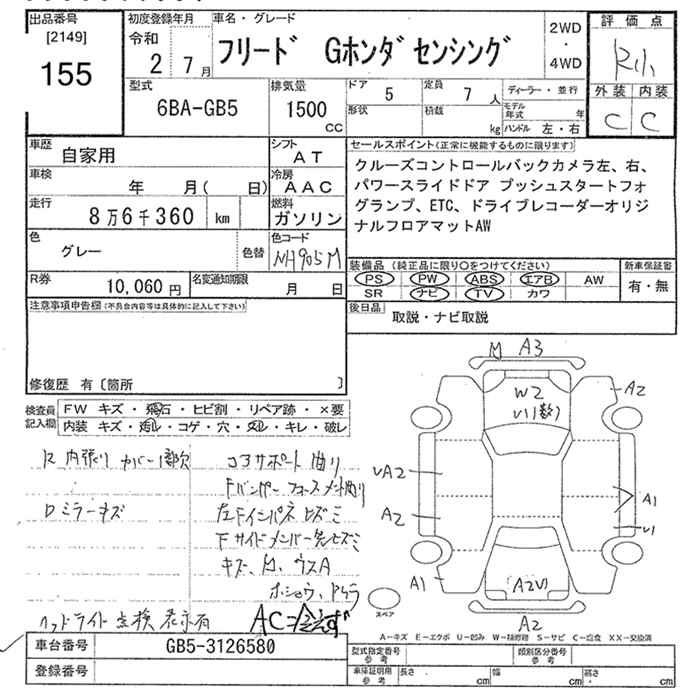 出品番号
[2149]
155
初度登録年月
令和
2 7月
車名・グレード
フリード Gホンダセンシング
2WD
・
4WD
評価点
R小
外装 内装
C C
型式
6BA-GB5
排気量
1500
cc
ドア
5
定員
7 人
形状
積載
kg
ディーラー・並行
モデル
年式 年
ハンドル 左・右
車歴
自家用
シフト
AT
車検
年 月( 日)
冷房
AAC
走行
8万6千360 km
燃料
ガソリン
色
グレー
色替
色コード
NH905M
R券
10,060 円
名変通知期限
月 日
セールスポイント(正常に機能するものに限ります)
クルーズコントロールバックカメラ左、右、
パワースライドドア プッシュスタートフォ
グランプ、ETC、ドライブレコーダーオリジ
ナルフロアマットAW
装備品 (純正品に限り〇をつけてください)
PS PW ABS エアB AW
SR ナビ TV カワ
新車保証書
有・無
後日品
取説・ナビ取説
注意事項申告欄(不具合内容等は具体的に記入して下さい)
修復歴 有〔箇所 〕
検査員
記入欄
FW キズ・飛石・ヒビ割・リペア跡・×要
内装 キズ・汚れ・コゲ・穴・スレ・キレ・破レ
R 内張り カバー1部欠
Dミラーキズ
コアサポート曲り
左Fインパネヒズミ
キズ、凹、ウスA
ヘッドライト点検表示有
AC=冷えず
M A3
W2
U1(数)
A2
UA2
A2
A1
A1
U1
A2U1
A2
スペア
A-キズ E-エクボ U-凹み W-補修跡 S-サビ C-腐食 XX-交換済
車台番号
GB5-3126580
登録番号
型式指定番号
参考
類別区分番号
参考
車庫証明用
参考
長さ cm
幅 cm
高さ cm